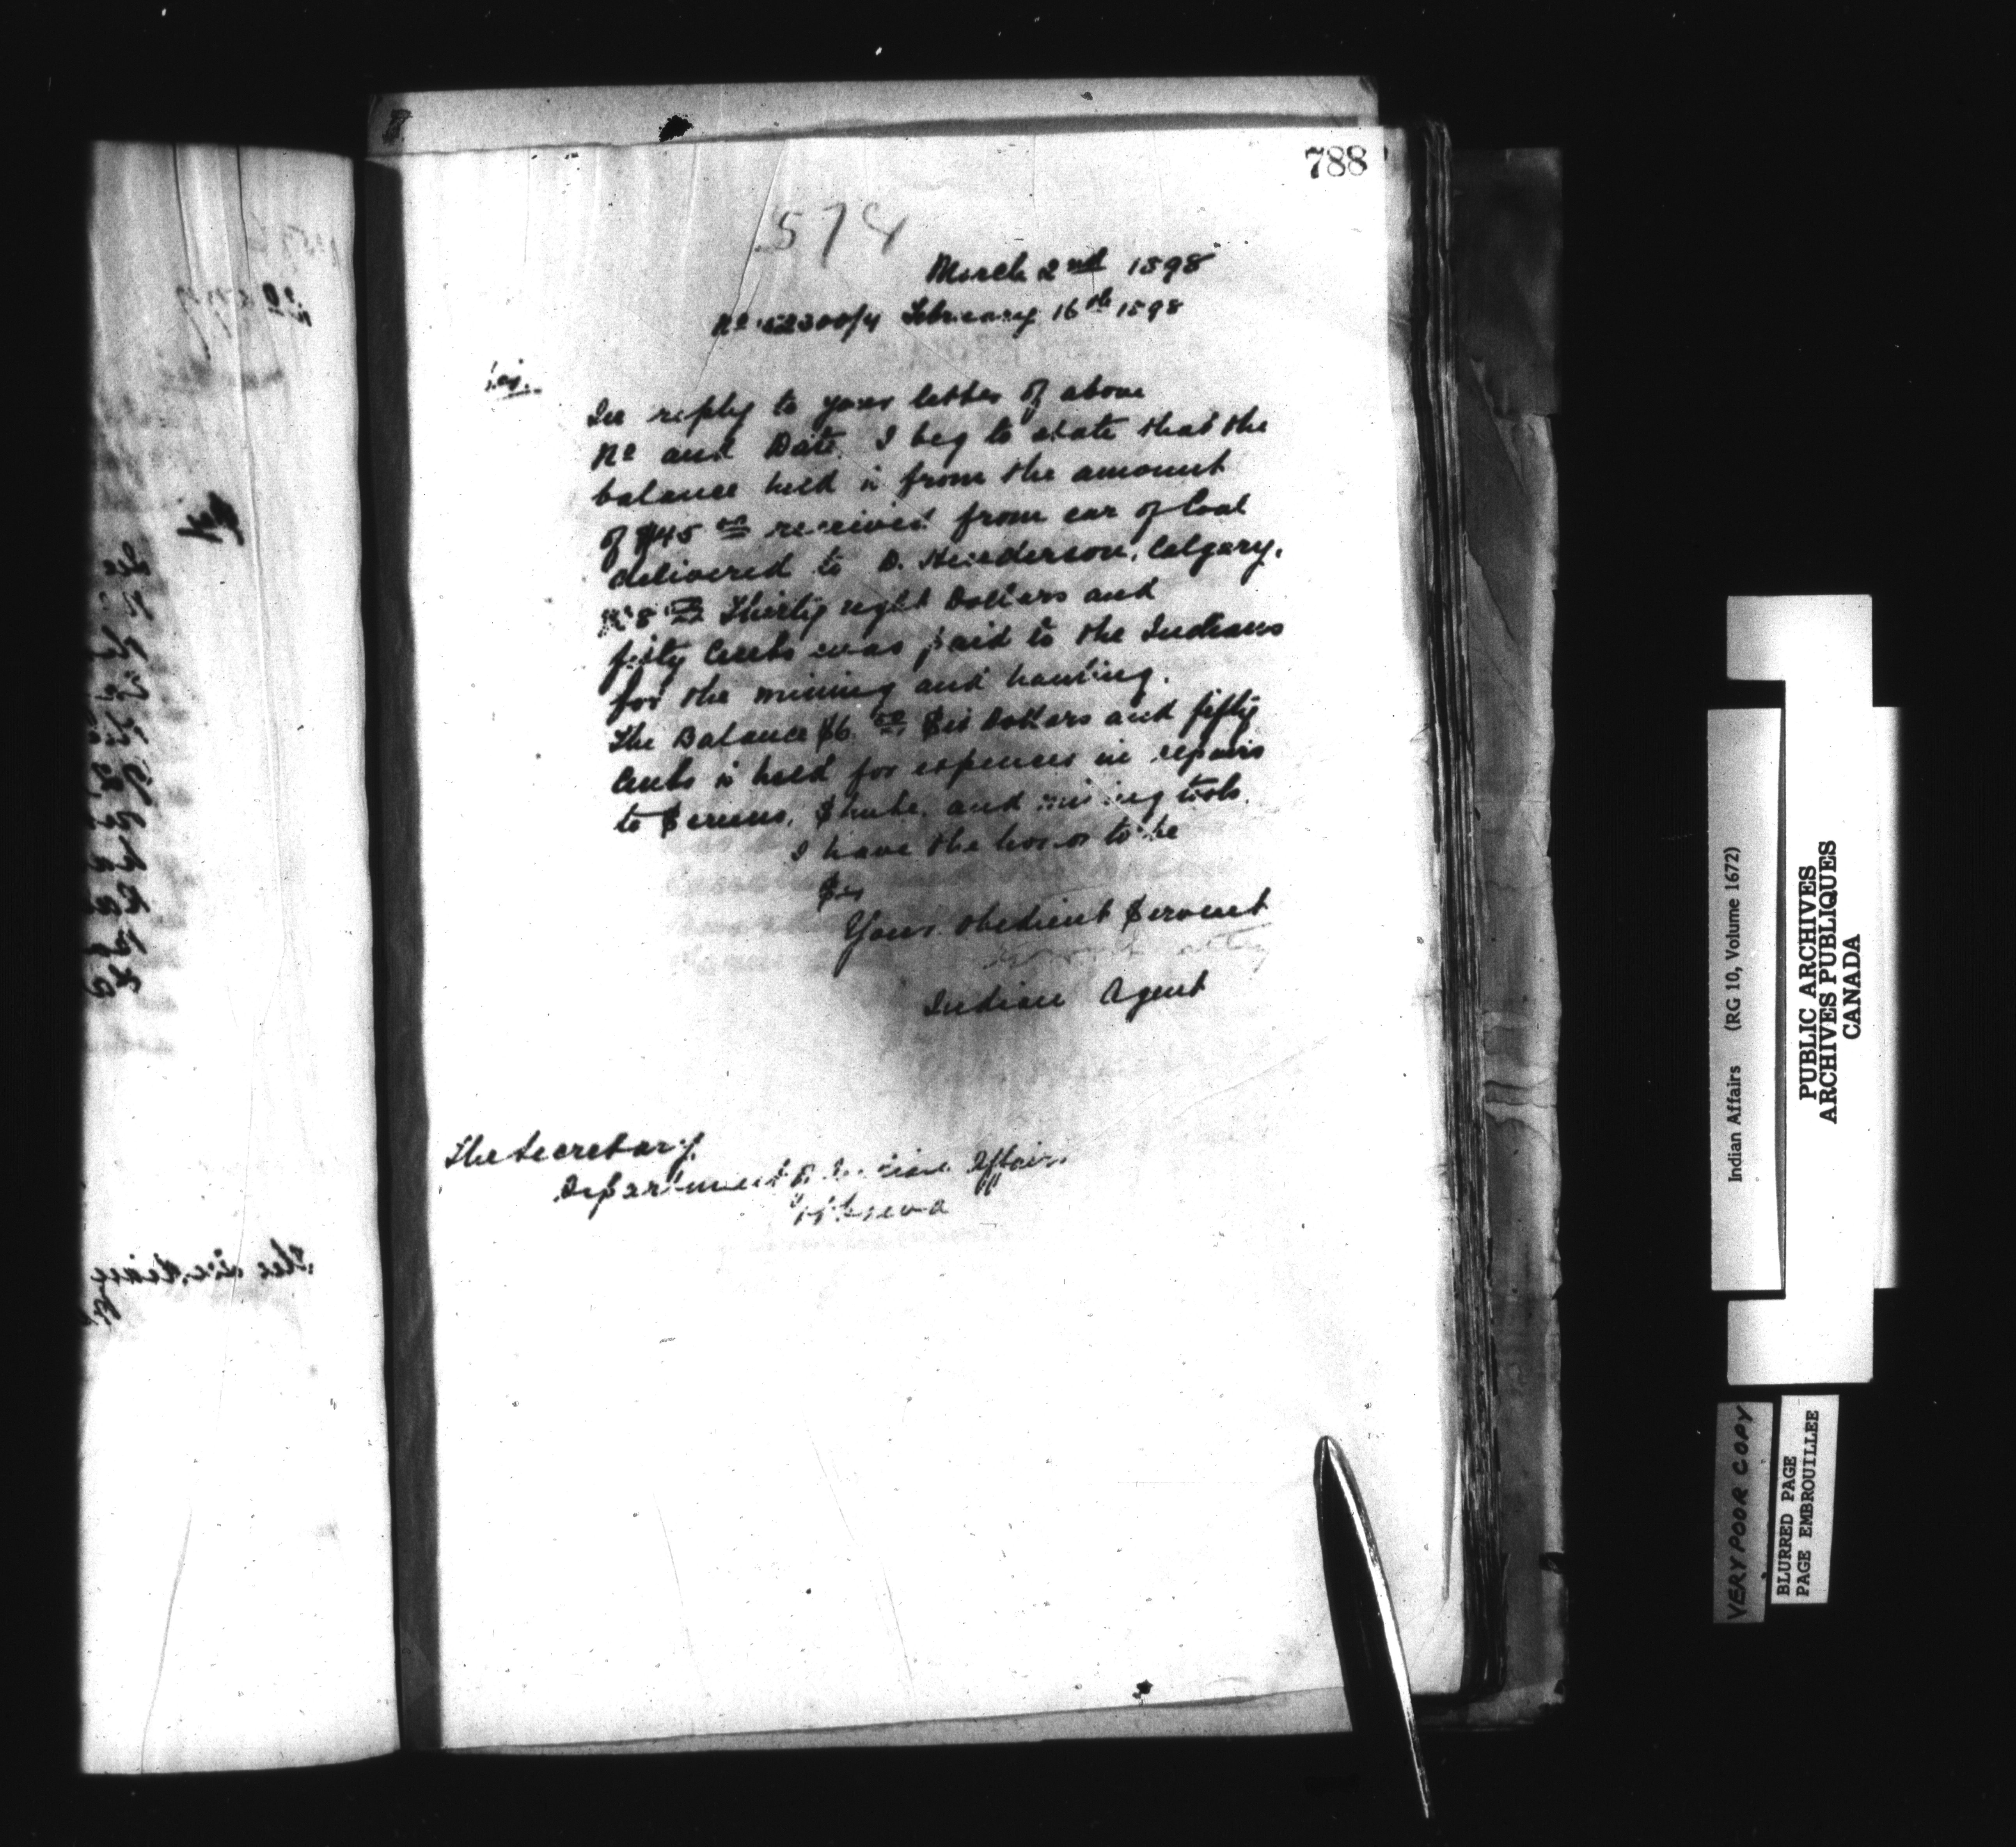 788
574
March 2nd 1898
No 52300/4 February 16th 1898
Sir.
In reply to your letter of above
No and Date. I beg to state that the
balance held is from the amount
of $45 00 received from car of Coal
delivered to D. Henderson, Calgary.
$38 50 Thirty eight Dollars and
fifty Cents was paid to the Indians
for the mining and hauling.
The Balance $6. 50 Six Dollars and fifty
Cents is held for expences in repairs
to Screens, Shute, and mining tools.
I have the honor to be
Sir
Your obedient Servent
Indian Agent
The Secretary.
Department of Indian Affairs
Ottawa
Indian Affairs (RG 10, Volume 1672)
PUBLIC ARCHIVES
ARCHIVES PUBLIQUES
CANADA
VERY POOR COPY
BLURRED PAGE
PAGE EMBROUILLEE